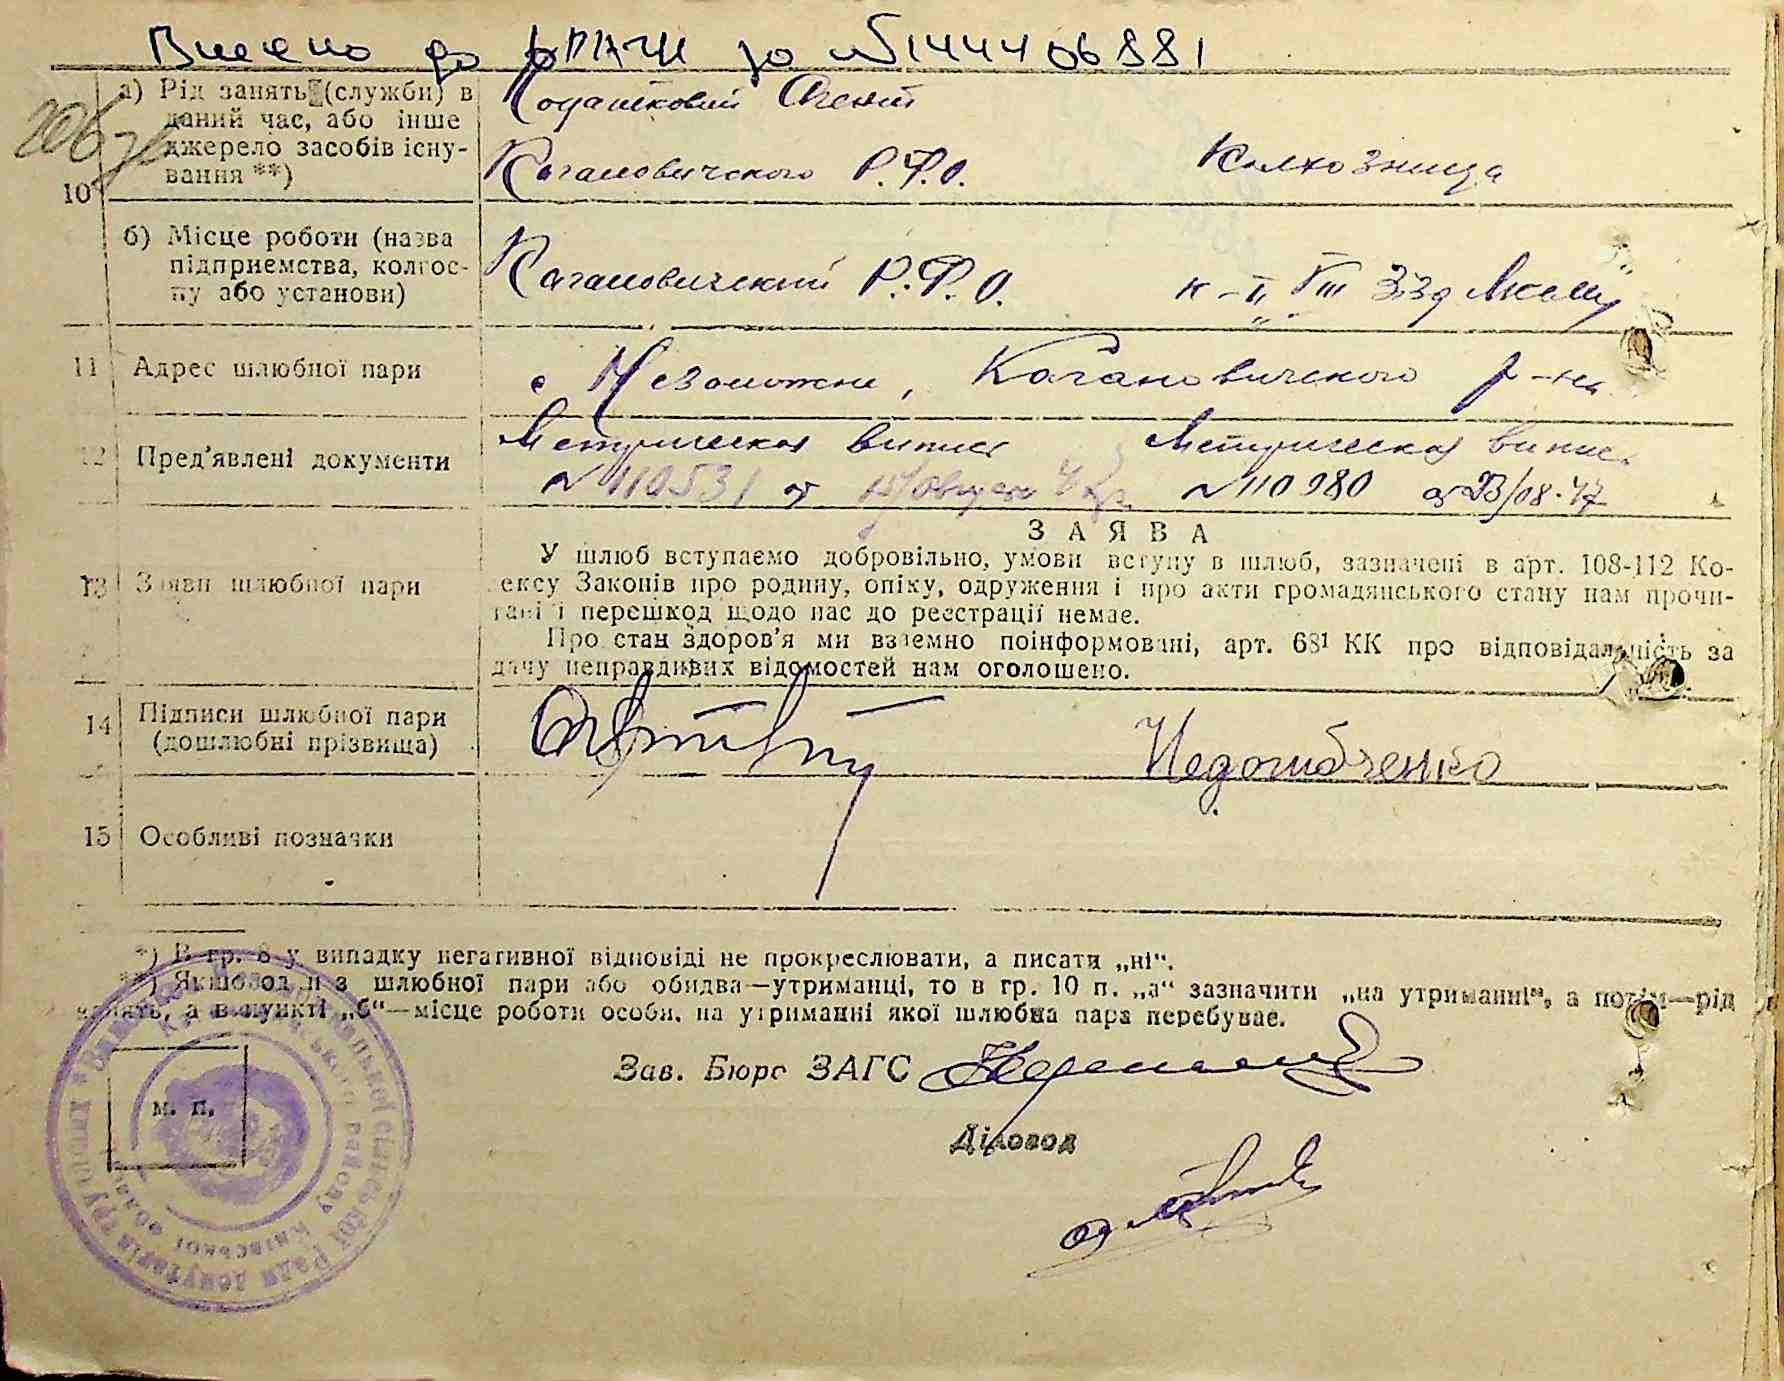 Внесено до ДРАЦС за №1444406881
а) Рід занять (служби) в
даний час, або інше
джерело засобів існу-
вання **)
10
Податковий Агент
Кагановичского Р.Ф.О.
Колхозница
б) Місце роботи (назва
підприємства, колгос-
пу або установи)
Кагановичский Р.Ф.О.
к-п
11 Адрес шлюбної пари
с Незаможне, Кагановичского р-на
12 Пред'явлені документи
Метрическая випис
№ 110531 от
Метрическая випис
№ 110980 от 23/08-47
13 Заяви шлюбної пари
ЗАЯВА
У шлюб вступаємо добровільно, умови вступу в шлюб, зазначені в арт. 108-112 Ко-
дексу Законів про родину, опіку, одруження і про акти громадянського стану нам прочи-
тані і перешкод щодо нас до реєстрації немає.
Про стан здоров'я ми взаємно поінформовані, арт. 68¹ КК про відповідальність за
дачу неправдивих відомостей нам оголошено.
14 Підписи шлюбної пари
(дошлюбні прізвища)
15 Особливі позначки
*) В гр. 8 у випадку негативної відповіді не прокреслювати, а писати „ні“.
**) Якщо один з шлюбної пари або обидва—утриманці, то в гр. 10 п. „а“ зазначити „на утриманні“, а потім—рід
занять, а в пункті „б“—місце роботи особи, на утриманні якої шлюбна пара перебуває.
Зав. Бюро ЗАГС
м. п.
Діловод